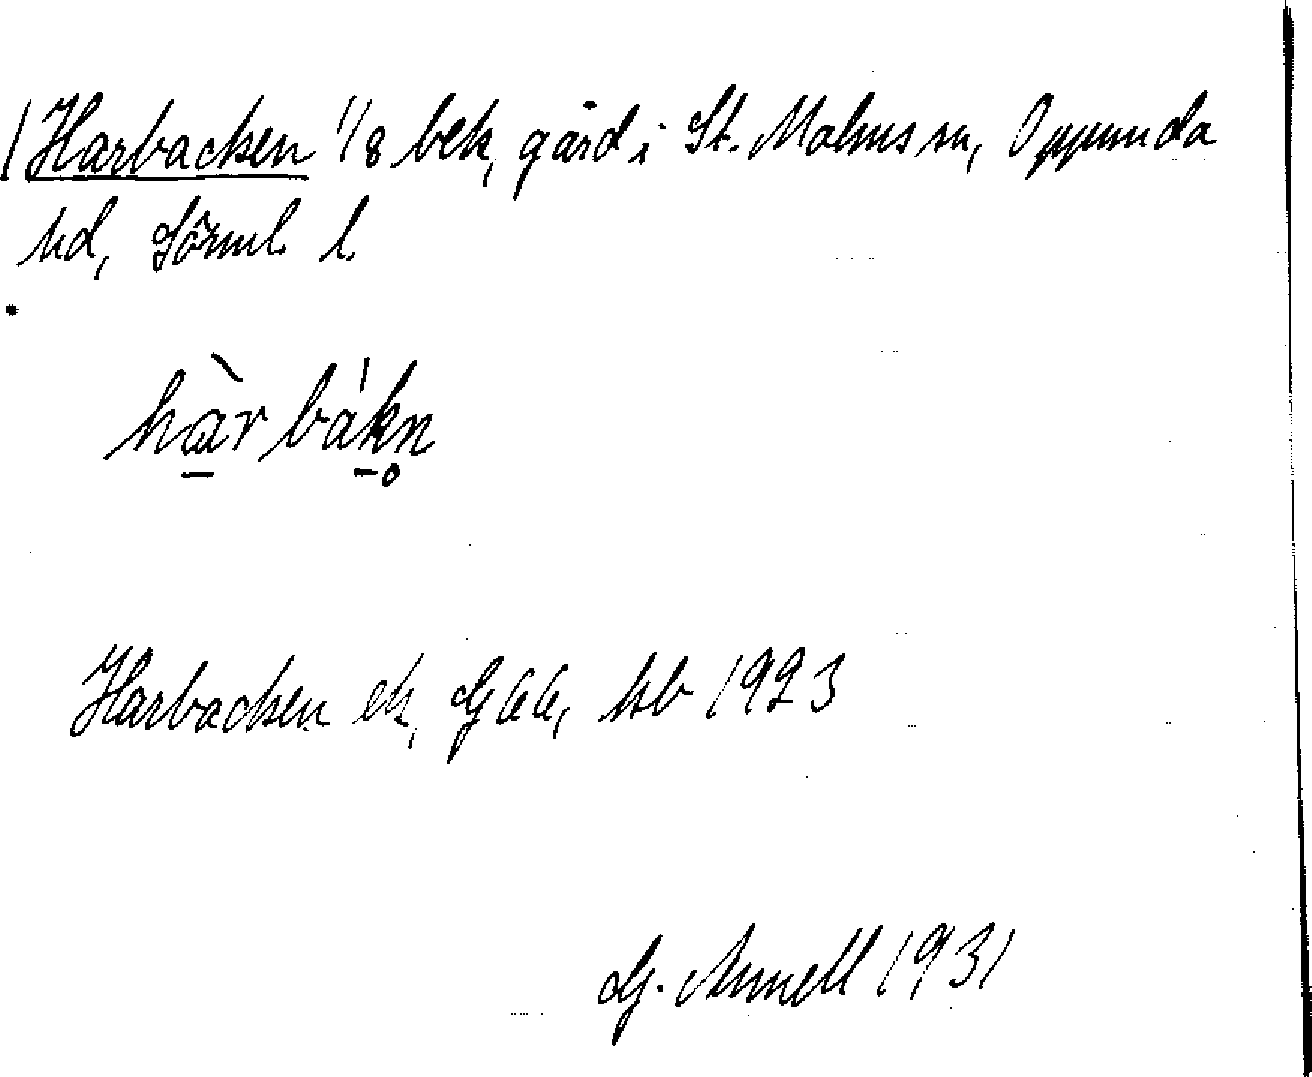 Harbacken 1/8 bek, gård i St. Malms sn, Oppunda
hd, Sörml. l.
hàrbákn
Harbacken ek, Gaa, kb 1923
G. Annell 1931